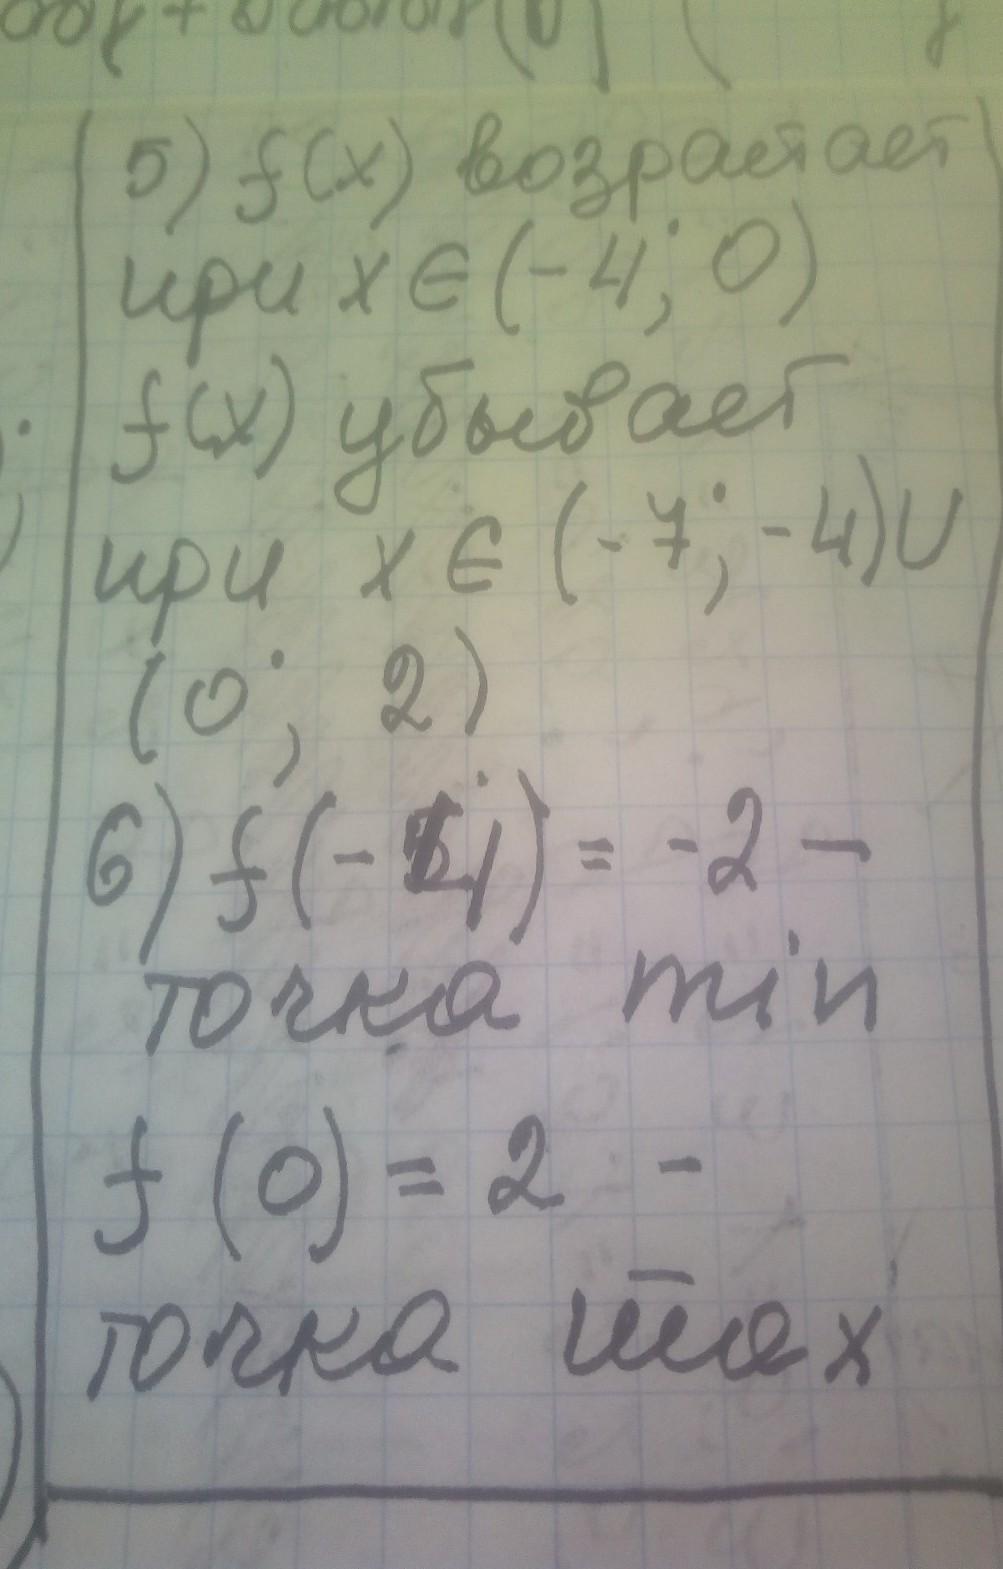 5) f(x) возрастает
при x ∈ (-4; 0)
f(x) убывает
при x ∈ (-7; -4) ∪
(0; 2)
6) f(-4) = -2 -
точка min
f(0) = 2 -
точка max